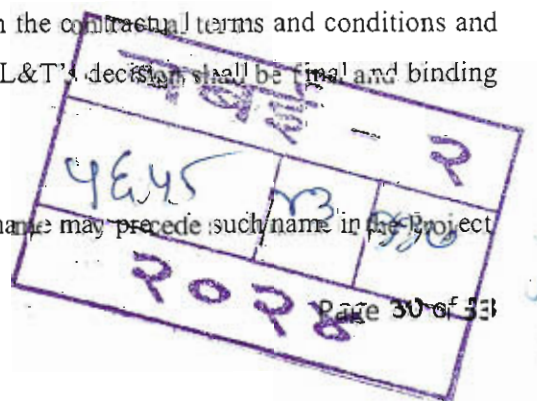 n the contractual terms and conditions and
L&T's decision shall be final and binding
बबई - २
५६४५
name may precede such name in the Project
२०२४
Page 30 of 33